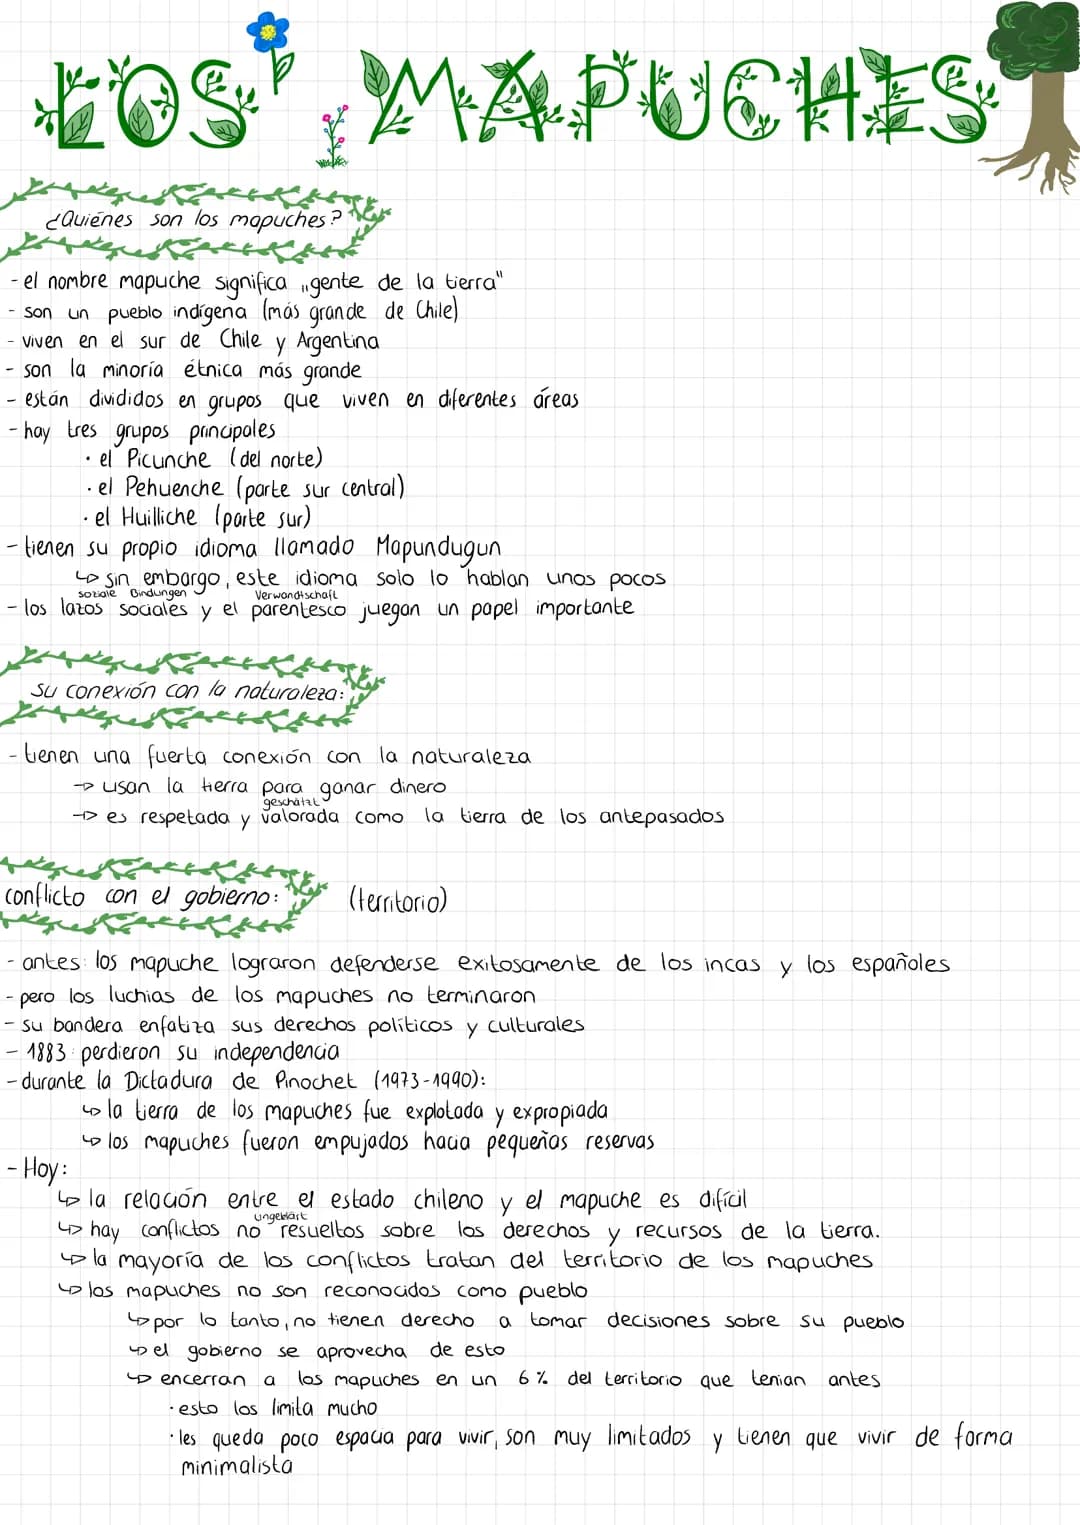 LOS MAPUCHES
¿Quiénes son los mapuches?
- el nombre mapuche significa „gente de la tierra"
- son un pueblo indígena (más grande de Chile)
- viven en el sur de Chile y Argentina
- son la minoría étnica más grande
- están divididos en grupos que viven en diferentes áreas
- hay tres grupos principales
· el Picunche (del norte)
· el Pehuenche (parte sur central)
· el Huilliche (parte sur)
- tienen su propio idioma llamado Mapundugun
↳ sin embargo, este idioma solo lo hablan unos pocos
soziale Bindungen Verwandtschaft
- los lazos sociales y el parentesco juegan un papel importante
Su conexión con la naturaleza:
- tienen una fuerta conexión con la naturaleza
→ usan la tierra para ganar dinero
geschätzt
→ es respetada y valorada como la tierra de los antepasados
conflicto con el gobierno: (territorio)
- antes: los mapuche lograron defenderse exitosamente de los incas y los españoles
- pero los luchias de los mapuches no terminaron
- su bandera enfatiza sus derechos políticos y culturales
- 1883: perdieron su independencia
- durante la Dictadura de Pinochet (1973-1990):
↳ la tierra de los mapuches fue explotada y expropiada
↳ los mapuches fueron empujados hacia pequeñas reservas
- Hoy:
↳ la relación entre el estado chileno y el mapuche es difícil
ungeklärt
↳ hay conflictos no resueltos sobre los derechos y recursos de la tierra.
↳ la mayoría de los conflictos tratan del territorio de los mapuches
↳ los mapuches no son reconocidos como pueblo
↳ por lo tanto, no tienen derecho a tomar decisiones sobre su pueblo
↳ el gobierno se aprovecha de esto
↳ encerran a los mapuches en un 6 % del territorio que tenian antes
· esto los limita mucho
· les queda poco espacia para vivir, son muy limitados y tienen que vivir de forma
minimalista